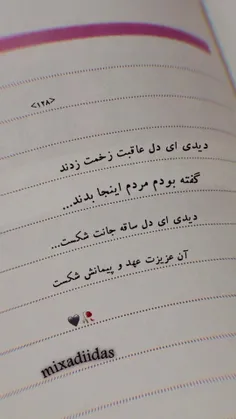 <۱۲۸>
دیدی ای دل عاقبت زخمت زدند
گفته بودم مردم اینجا بدند...
دیدی ای دل ساقه جانت شکست...
آن عزیزت عهد و پیمانش شکست
🖤🥀
mixadiidas